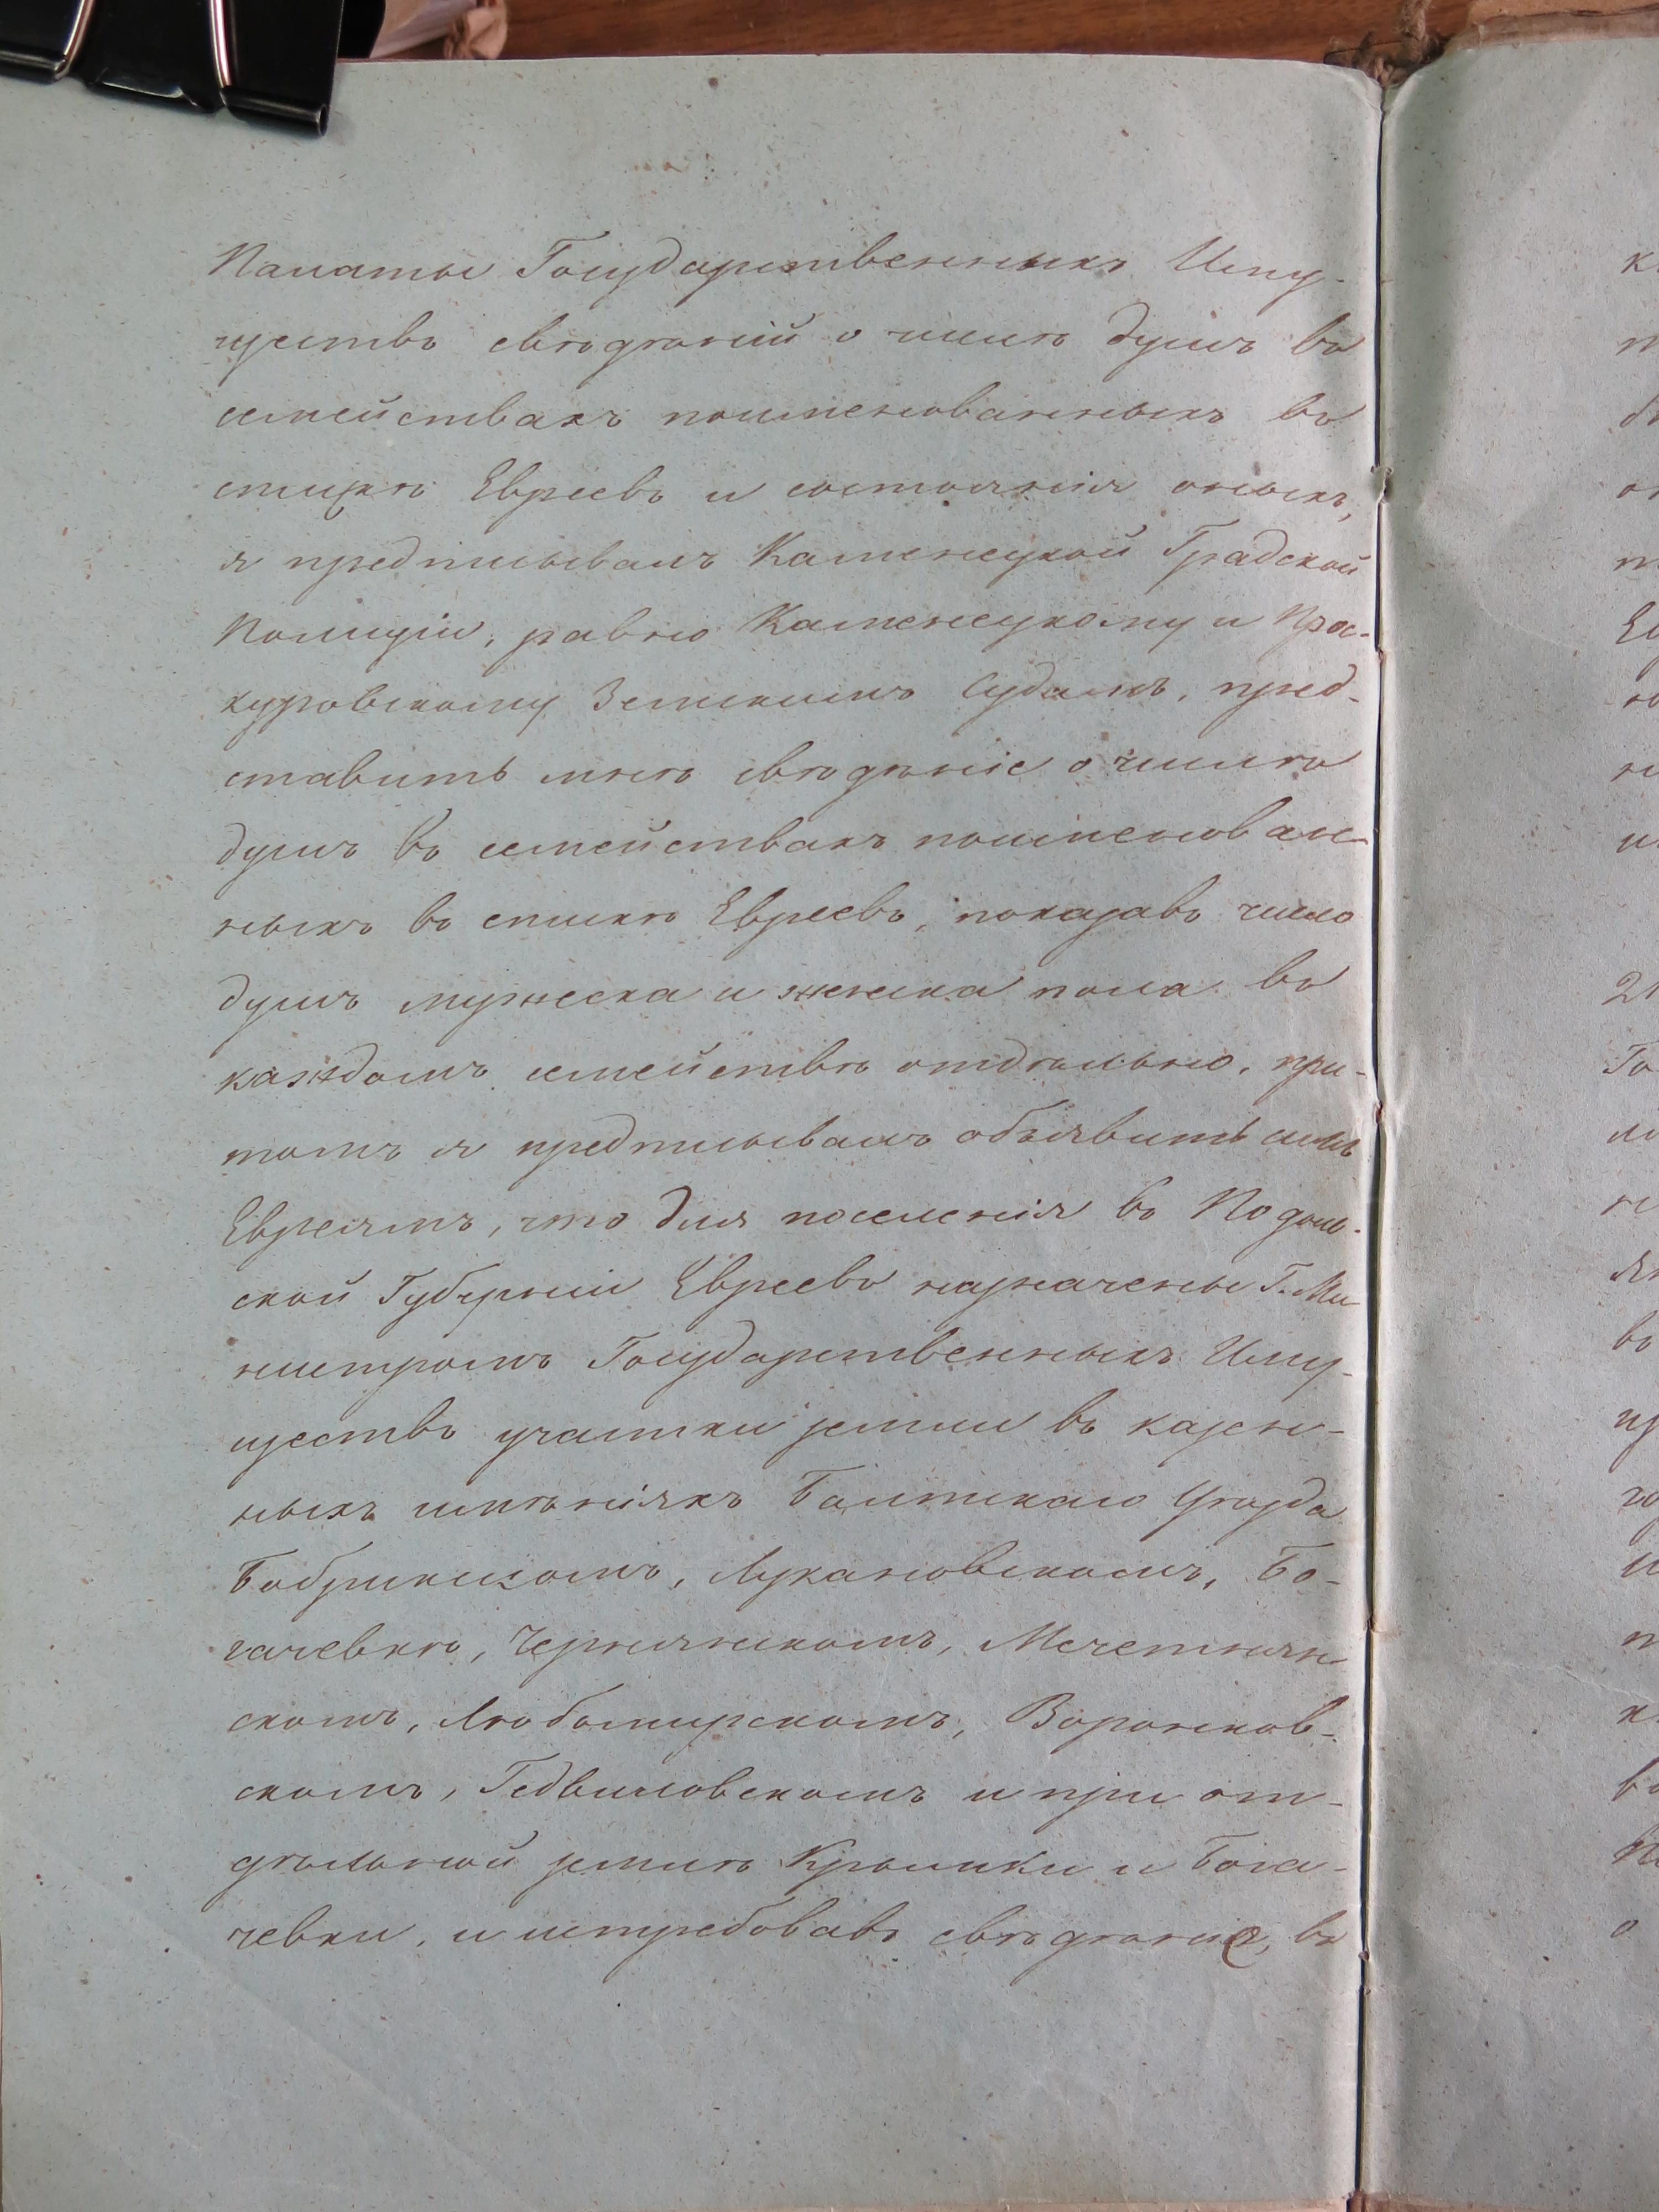 Палаты Государственныхъ Иму-
ществъ свѣдѣній о числѣ душъ въ
семействахъ поименованныхъ въ
спискѣ Евреевъ и состоянія оныхъ,
я предписывалъ Каменецкой Градской
Полиціи, равно Каменецкому и Прос-
куровскому Земскимъ Судамъ, пред-
ставить мнѣ свѣдѣніе о числѣ
душъ въ семействахъ поименован-
ныхъ въ спискѣ Евреевъ, показавъ число
душъ мужеска и женска пола въ
каждомъ семействѣ отдѣльно, при-
томъ я предписывалъ объявить симъ
Евреямъ, что для поселенія въ Подоль-
ской Губерніи Евреевъ назначены Г. Ми-
нистромъ Государственныхъ Иму-
ществъ участки земли въ казен-
ныхъ имѣніяхъ Балтскаго Уѣзда
Бобринскомъ, Лукановскомъ, Бо-
гачевкѣ, Чернянскомъ, Мечетнян-
скомъ, Любомирскомъ, Воронков-
скомъ, Гедвиловскомъ и при от-
дѣльной землѣ Крымки и Бога-
чевки, и истребовавъ свѣдѣнія, въ